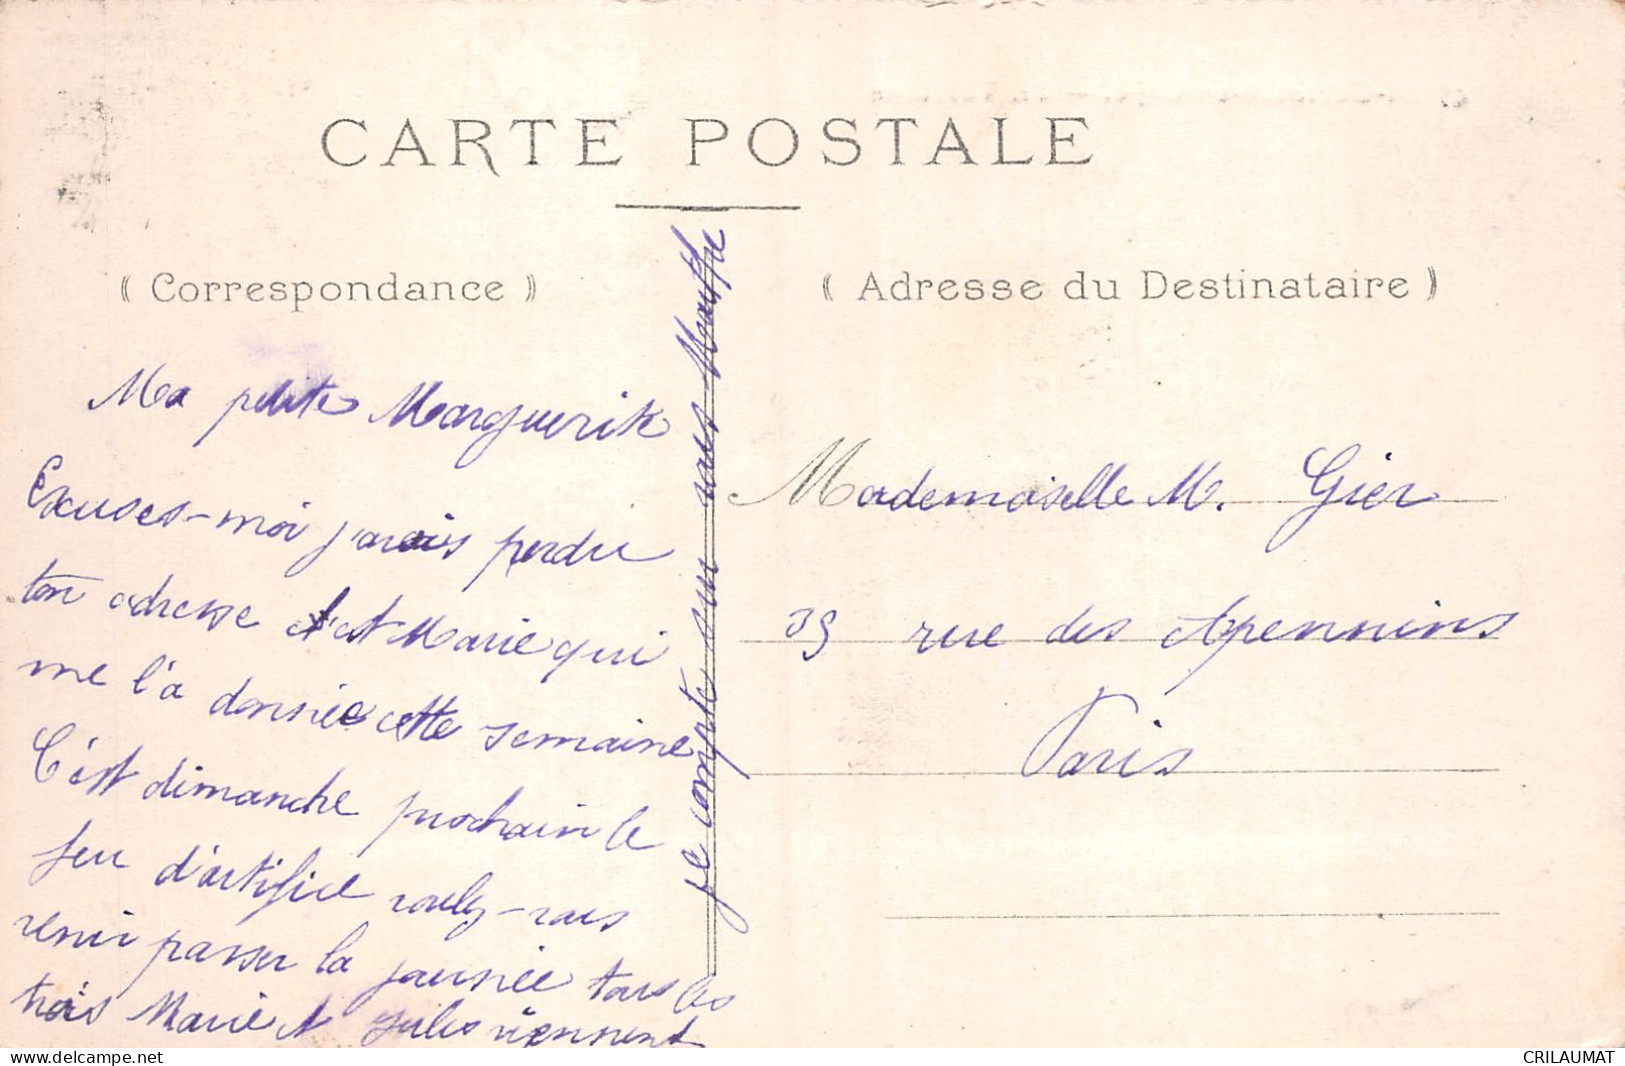 CARTE POSTALE
(Correspondance)
(Adresse du Destinataire)
Ma petite Marguerite
Excuses-moi j'avais perdu
ton adresse c'est Marie qui
me l'a donnée cette semaine
C'est dimanche prochain le
feu d'artifice voulez-vous
venir passer la journée tous les
trois Marie et Jules viennent
je compte sur vous Marthe
Mademoiselle M. Gier
39 rue des Apennins
Paris
CRILAUMAT